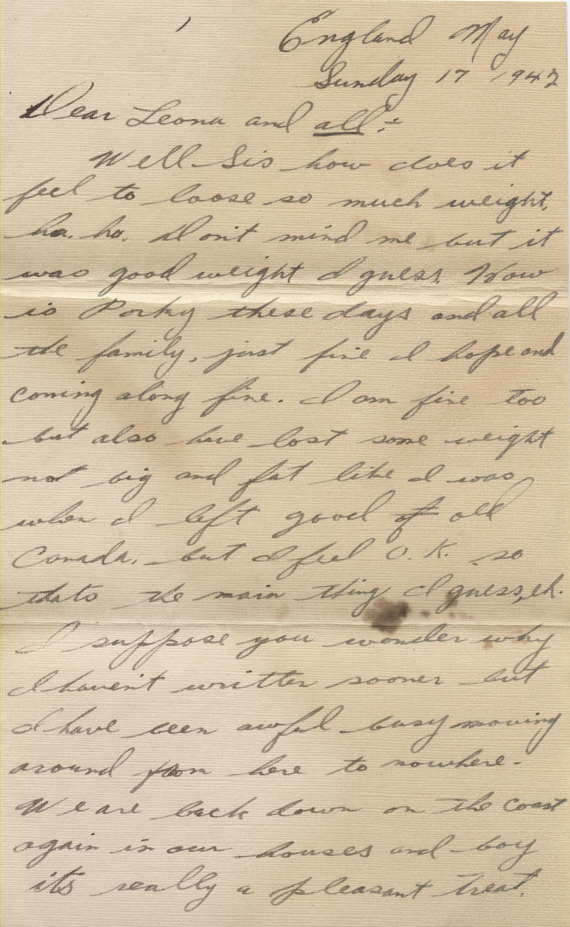 1
England May
Sunday 17 1942
Dear Leona and all :-
Well Sis how does it
feel to loose so much weight,
ha. ha. Don't mind me but it
was good weight I guess. How
is Porky these days and all
the family, just fine I hope and
coming along fine. I am fine too
but also have lost some weight
not big and fat like I was
when I left good of old
Canada, but I feel O.K. so
thats the main thing I guess, eh.
I suppose you wonder why
I haven't writter sooner but
I have been awful busy moving
around from here to nowhere-
We are back down on the coast
again in our houses and boy
its really a pleasant treat.